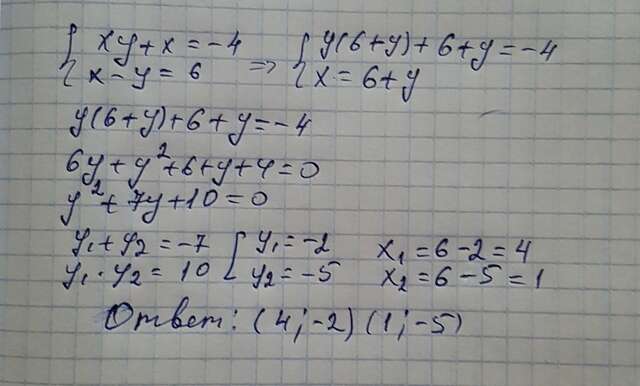 { xy + x = -4 => { y(6+y) + 6 + y = -4
{ x - y = 6 { x = 6 + y
y(6+y) + 6 + y = -4
6y + y² + 6 + y + 4 = 0
y² + 7y + 10 = 0
y₁ + y₂ = -7 [ y₁ = -2 x₁ = 6 - 2 = 4
y₁ · y₂ = 10 [ y₂ = -5 x₂ = 6 - 5 = 1
Ответ: (4; -2) (1; -5)